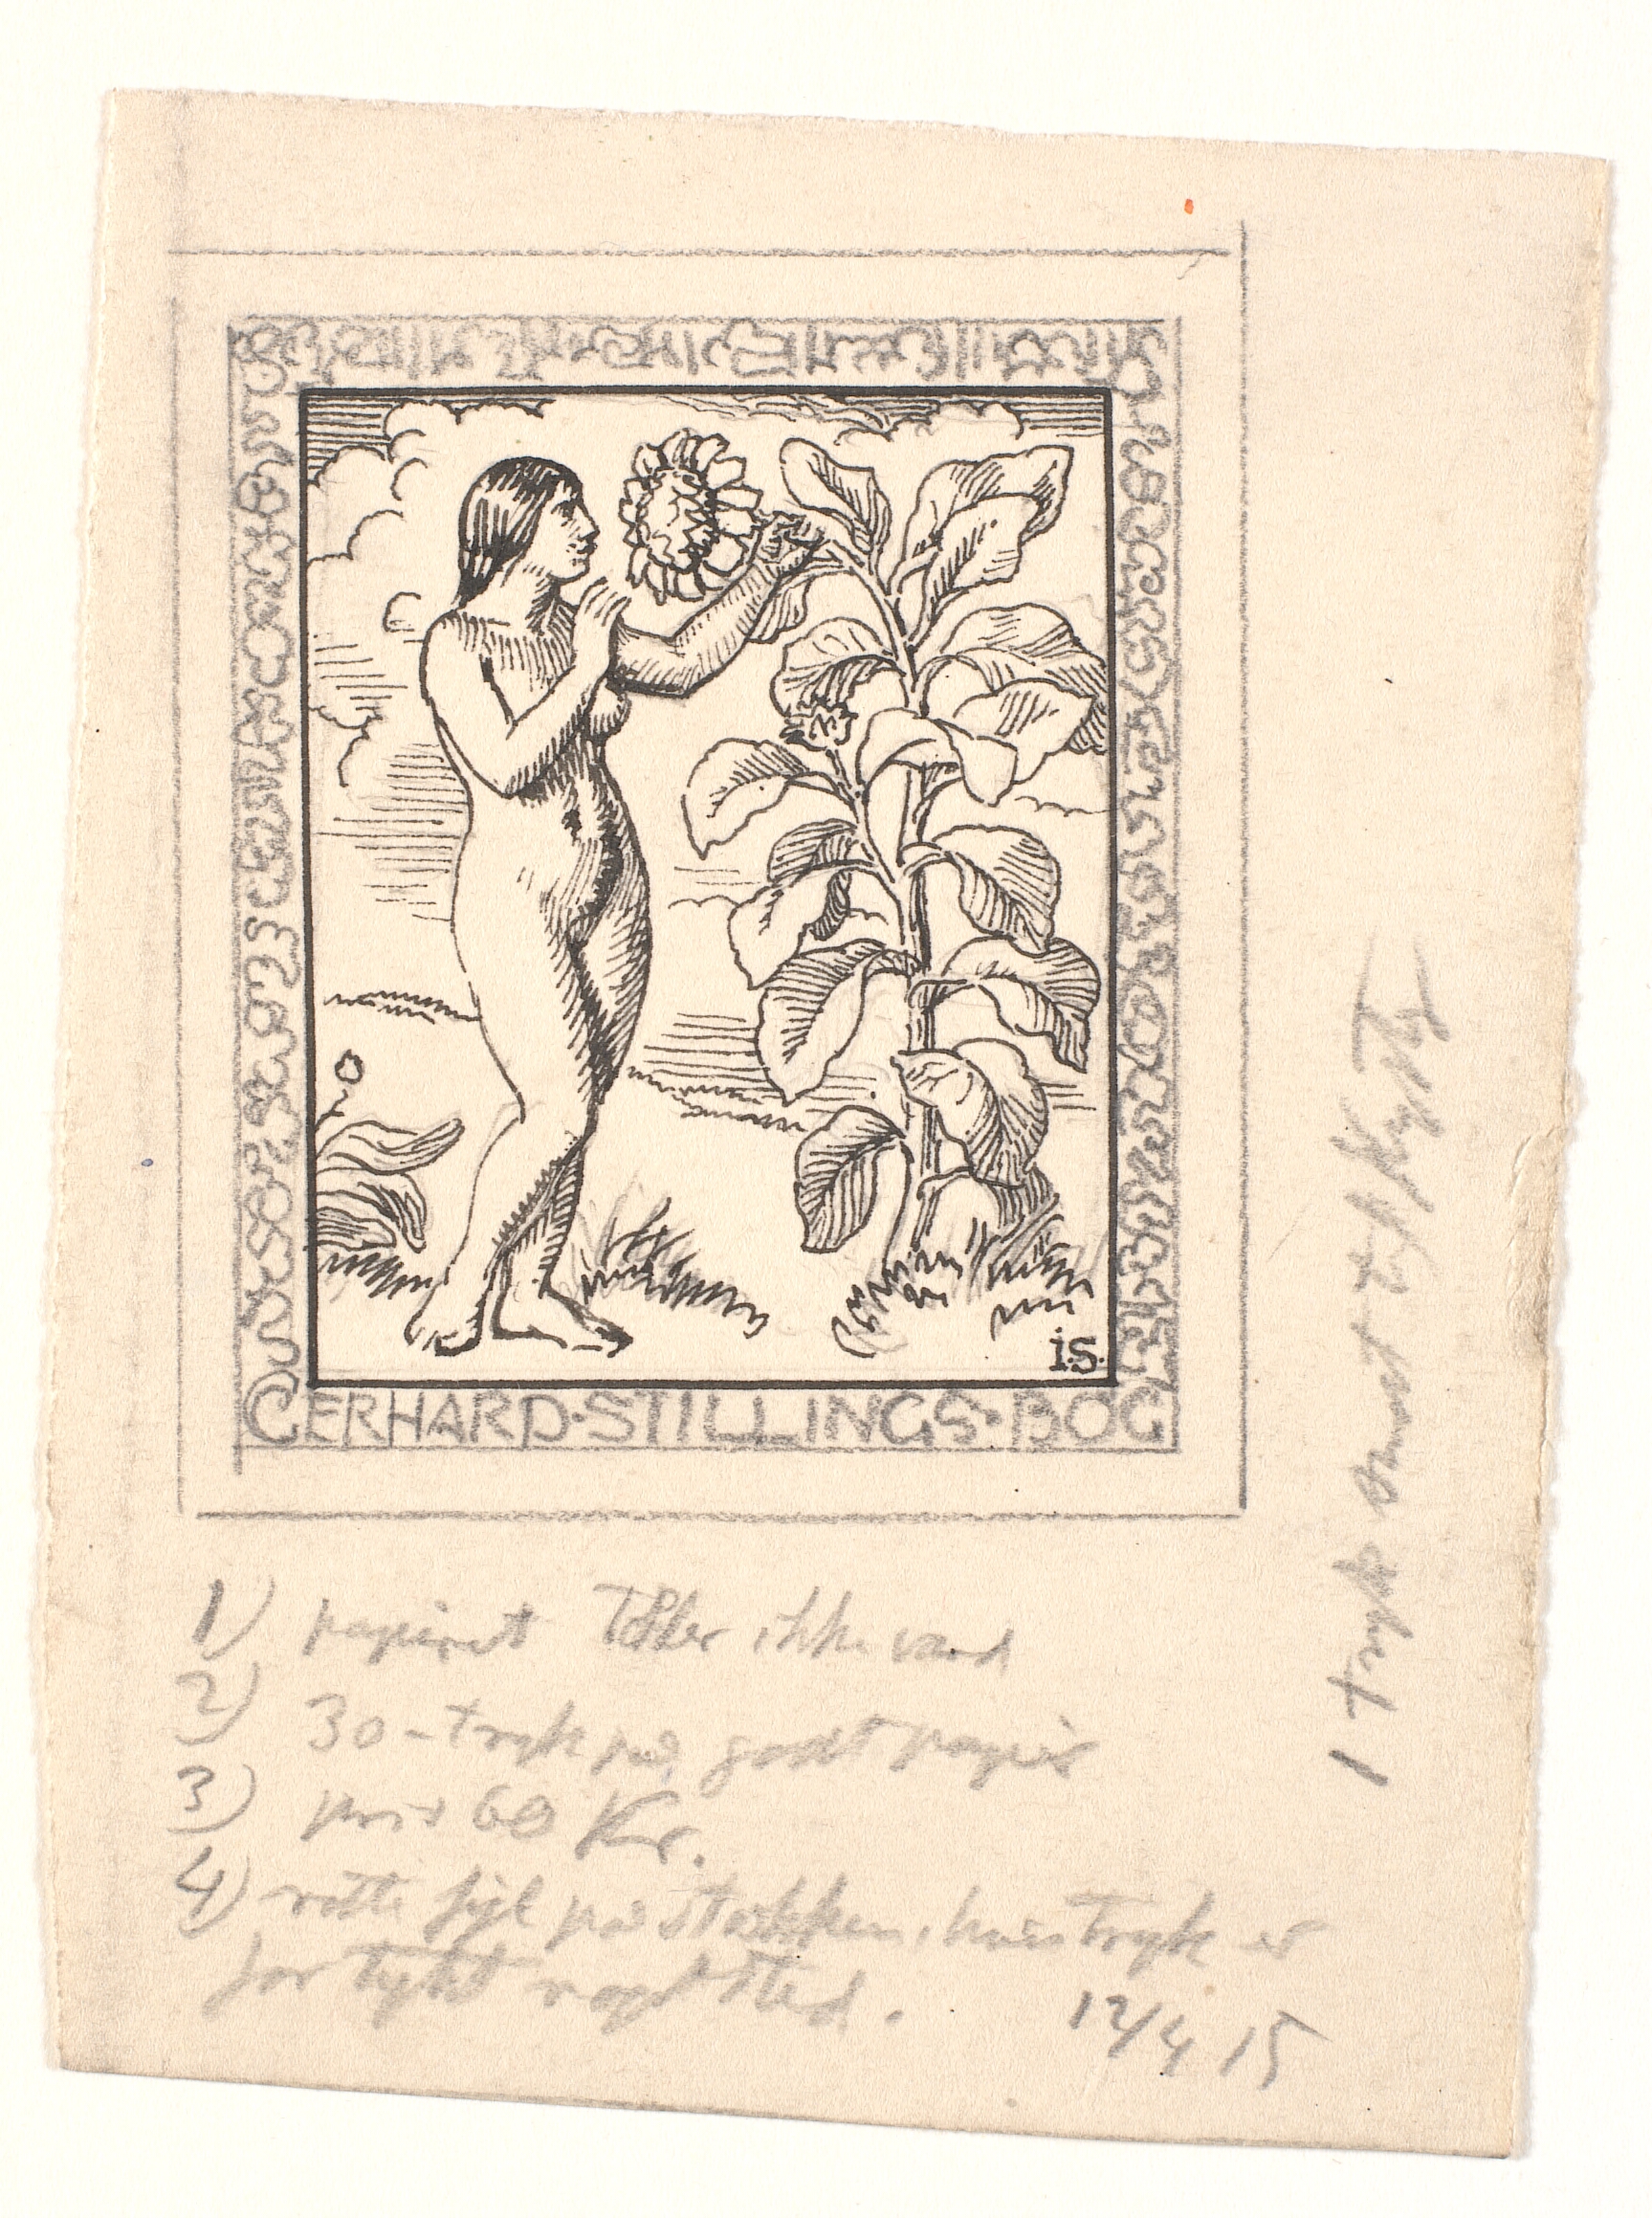 i.S.
GERHARD·STILLINGS·BOG
1) papiret tåler ikke vand
2) 30-tryk på godt papir
3) pris 60 Kr.
4) rette fejl på stokken, hvis tryk er
for tykt noget sted.
12/4 15
1 tryk